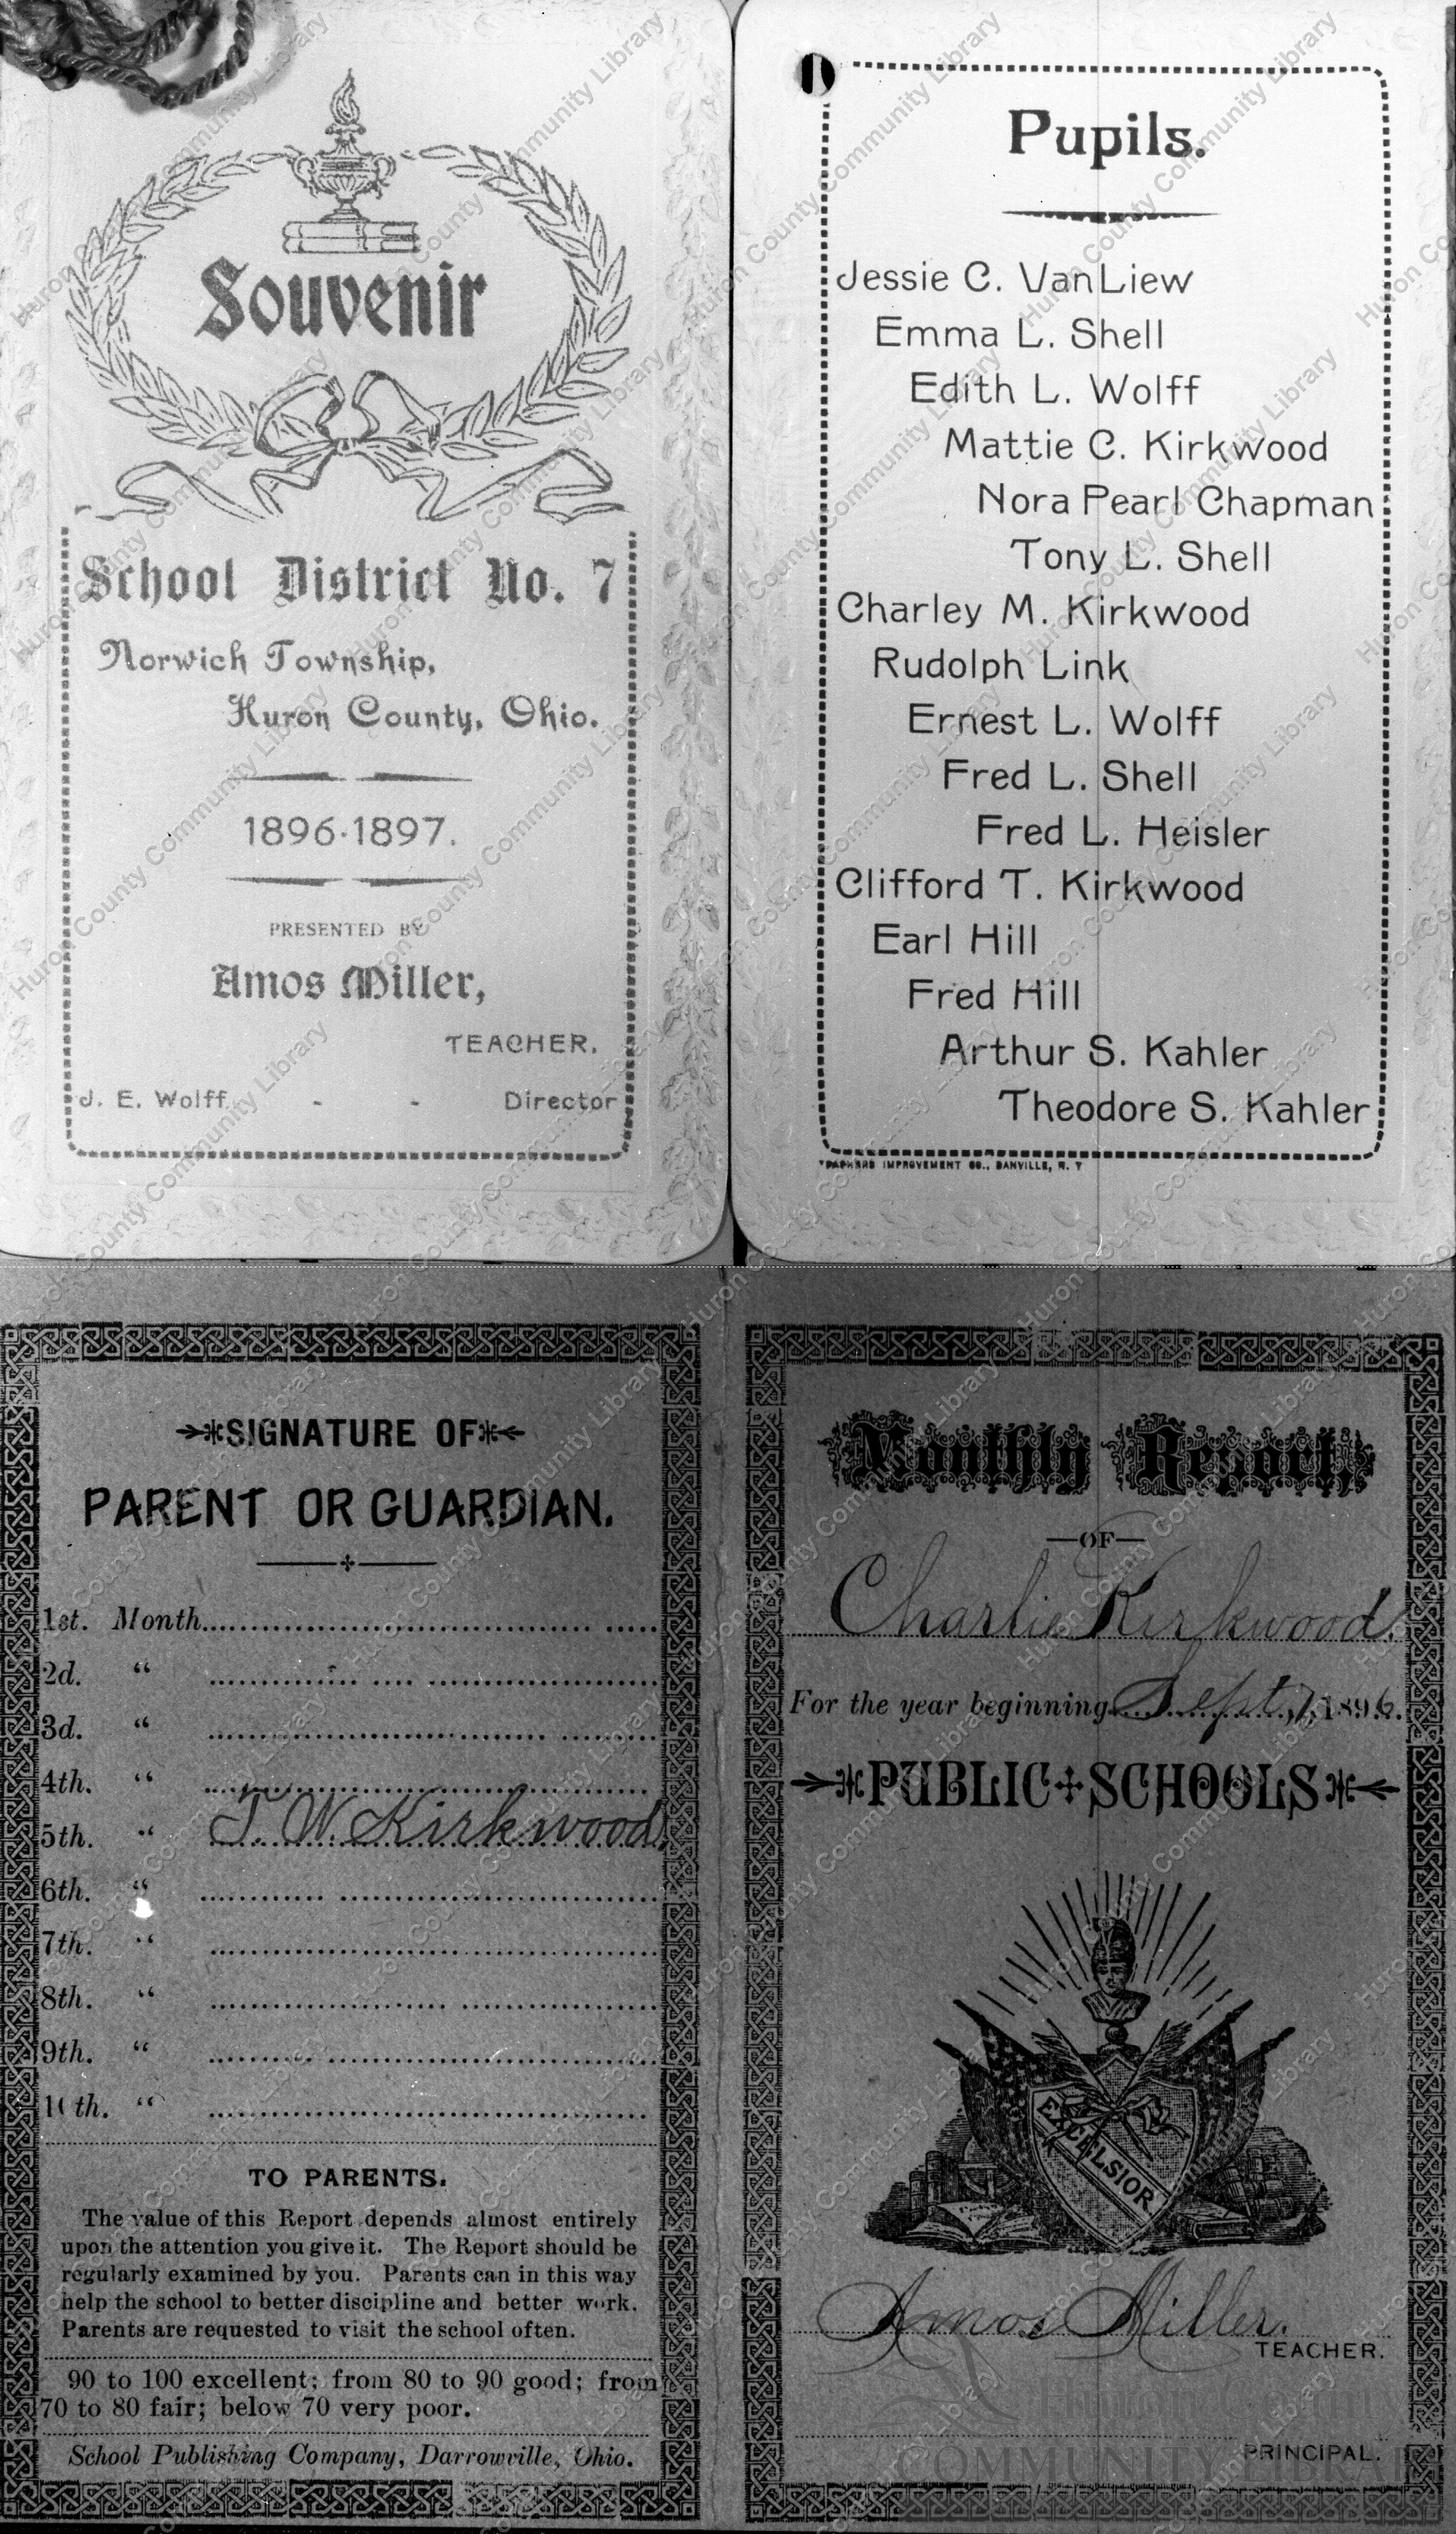 Souvenir
School District No. 7
Norwich Township,
Huron County, Ohio.
1896-1897.
PRESENTED BY
Amos Miller,
TEACHER.
J. E. Wolff, - - Director
Pupils.
Jessie C. VanLiew
Emma L. Shell
Edith L. Wolff
Mattie C. Kirkwood
Nora Pearl Chapman
Tony L. Shell
Charley M. Kirkwood
Rudolph Link
Ernest L. Wolff
Fred L. Shell
Fred L. Heisler
Clifford T. Kirkwood
Earl Hill
Fred Hill
Arthur S. Kahler
Theodore S. Kahler
IMPROVEMENT CO., DANVILLE, N. Y
SIGNATURE OF
PARENT OR GUARDIAN.
1st. Month
2d. “
3d. “
4th. “
5th. “ T. W. Kirkwood
6th. “
7th. “
8th. “
9th. “
10th. “
TO PARENTS.
The value of this Report depends almost entirely
upon the attention you give it. The Report should be
regularly examined by you. Parents can in this way
help the school to better discipline and better work.
Parents are requested to visit the school often.
90 to 100 excellent; from 80 to 90 good; from
70 to 80 fair; below 70 very poor.
School Publishing Company, Darrowville, Ohio.
Monthly Report,
—OF—
Charlie Kirkwood.
For the year beginning Sept. 7, 1896.
PUBLIC SCHOOLS
EXCELSIOR
Amos Miller.
TEACHER.
PRINCIPAL.
Huron County
COMMUNITY LIBRARY
Huron County Community Library